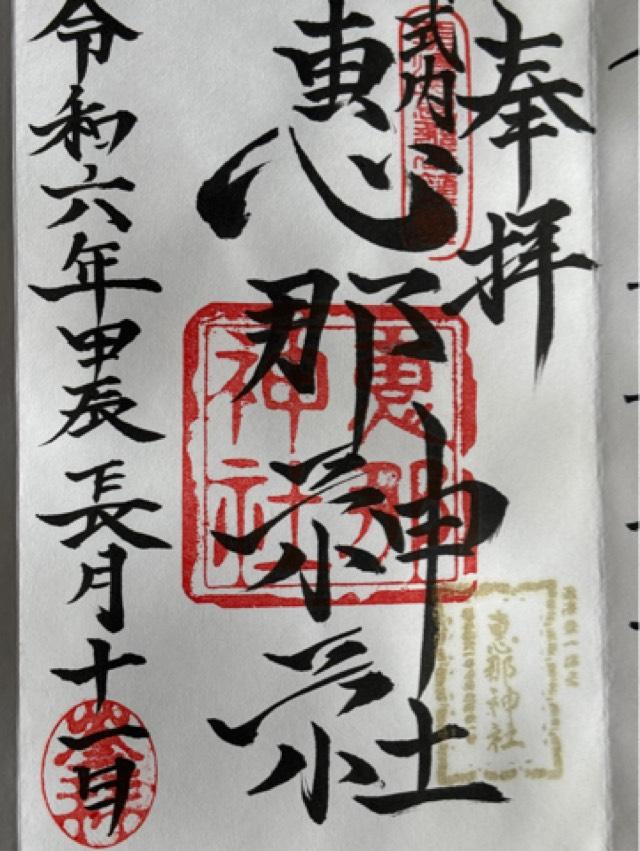 奉拝
式内
恵那神社
恵那神社
恵那神社
令和六年甲辰長月十一日